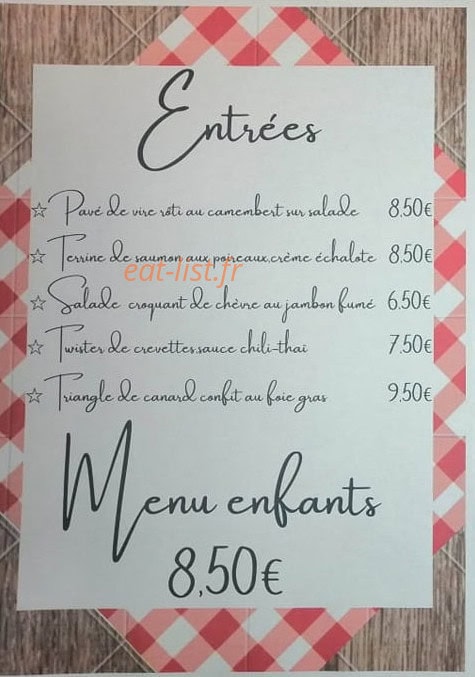 Entrées
☆ Pavé de vire rôti au camembert sur salade 8,50€
☆ Terrine de saumon aux poireaux,crème échalote 8,50€
eat-list.fr
☆ Salade croquant de chèvre au jambon fumé 6,50€
☆ Twister de crevettes,sauce chili-thaï 7,50€
☆ Triangle de canard confit au foie gras 9,50€
Menu enfants
8,50€